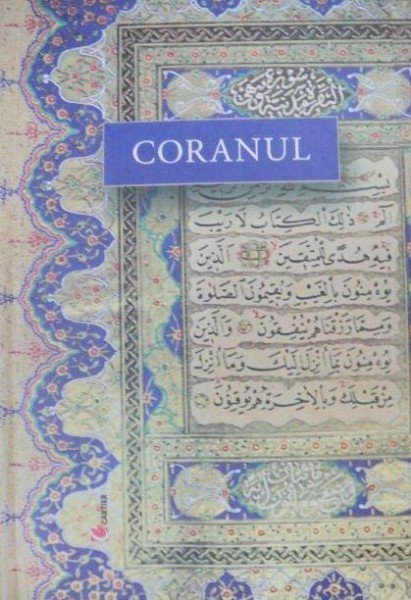 CORANUL
الم ذلك الكتاب لا ريب
فيه هدى للمتقين الذين
يؤمنون بالغيب ويقيمون الصلوة
ومما رزقناهم ينفقون والذين
يؤمنون بما انزل اليك وما انزل
من قبلك وبالاخرة هم يوقنون
CARTIER